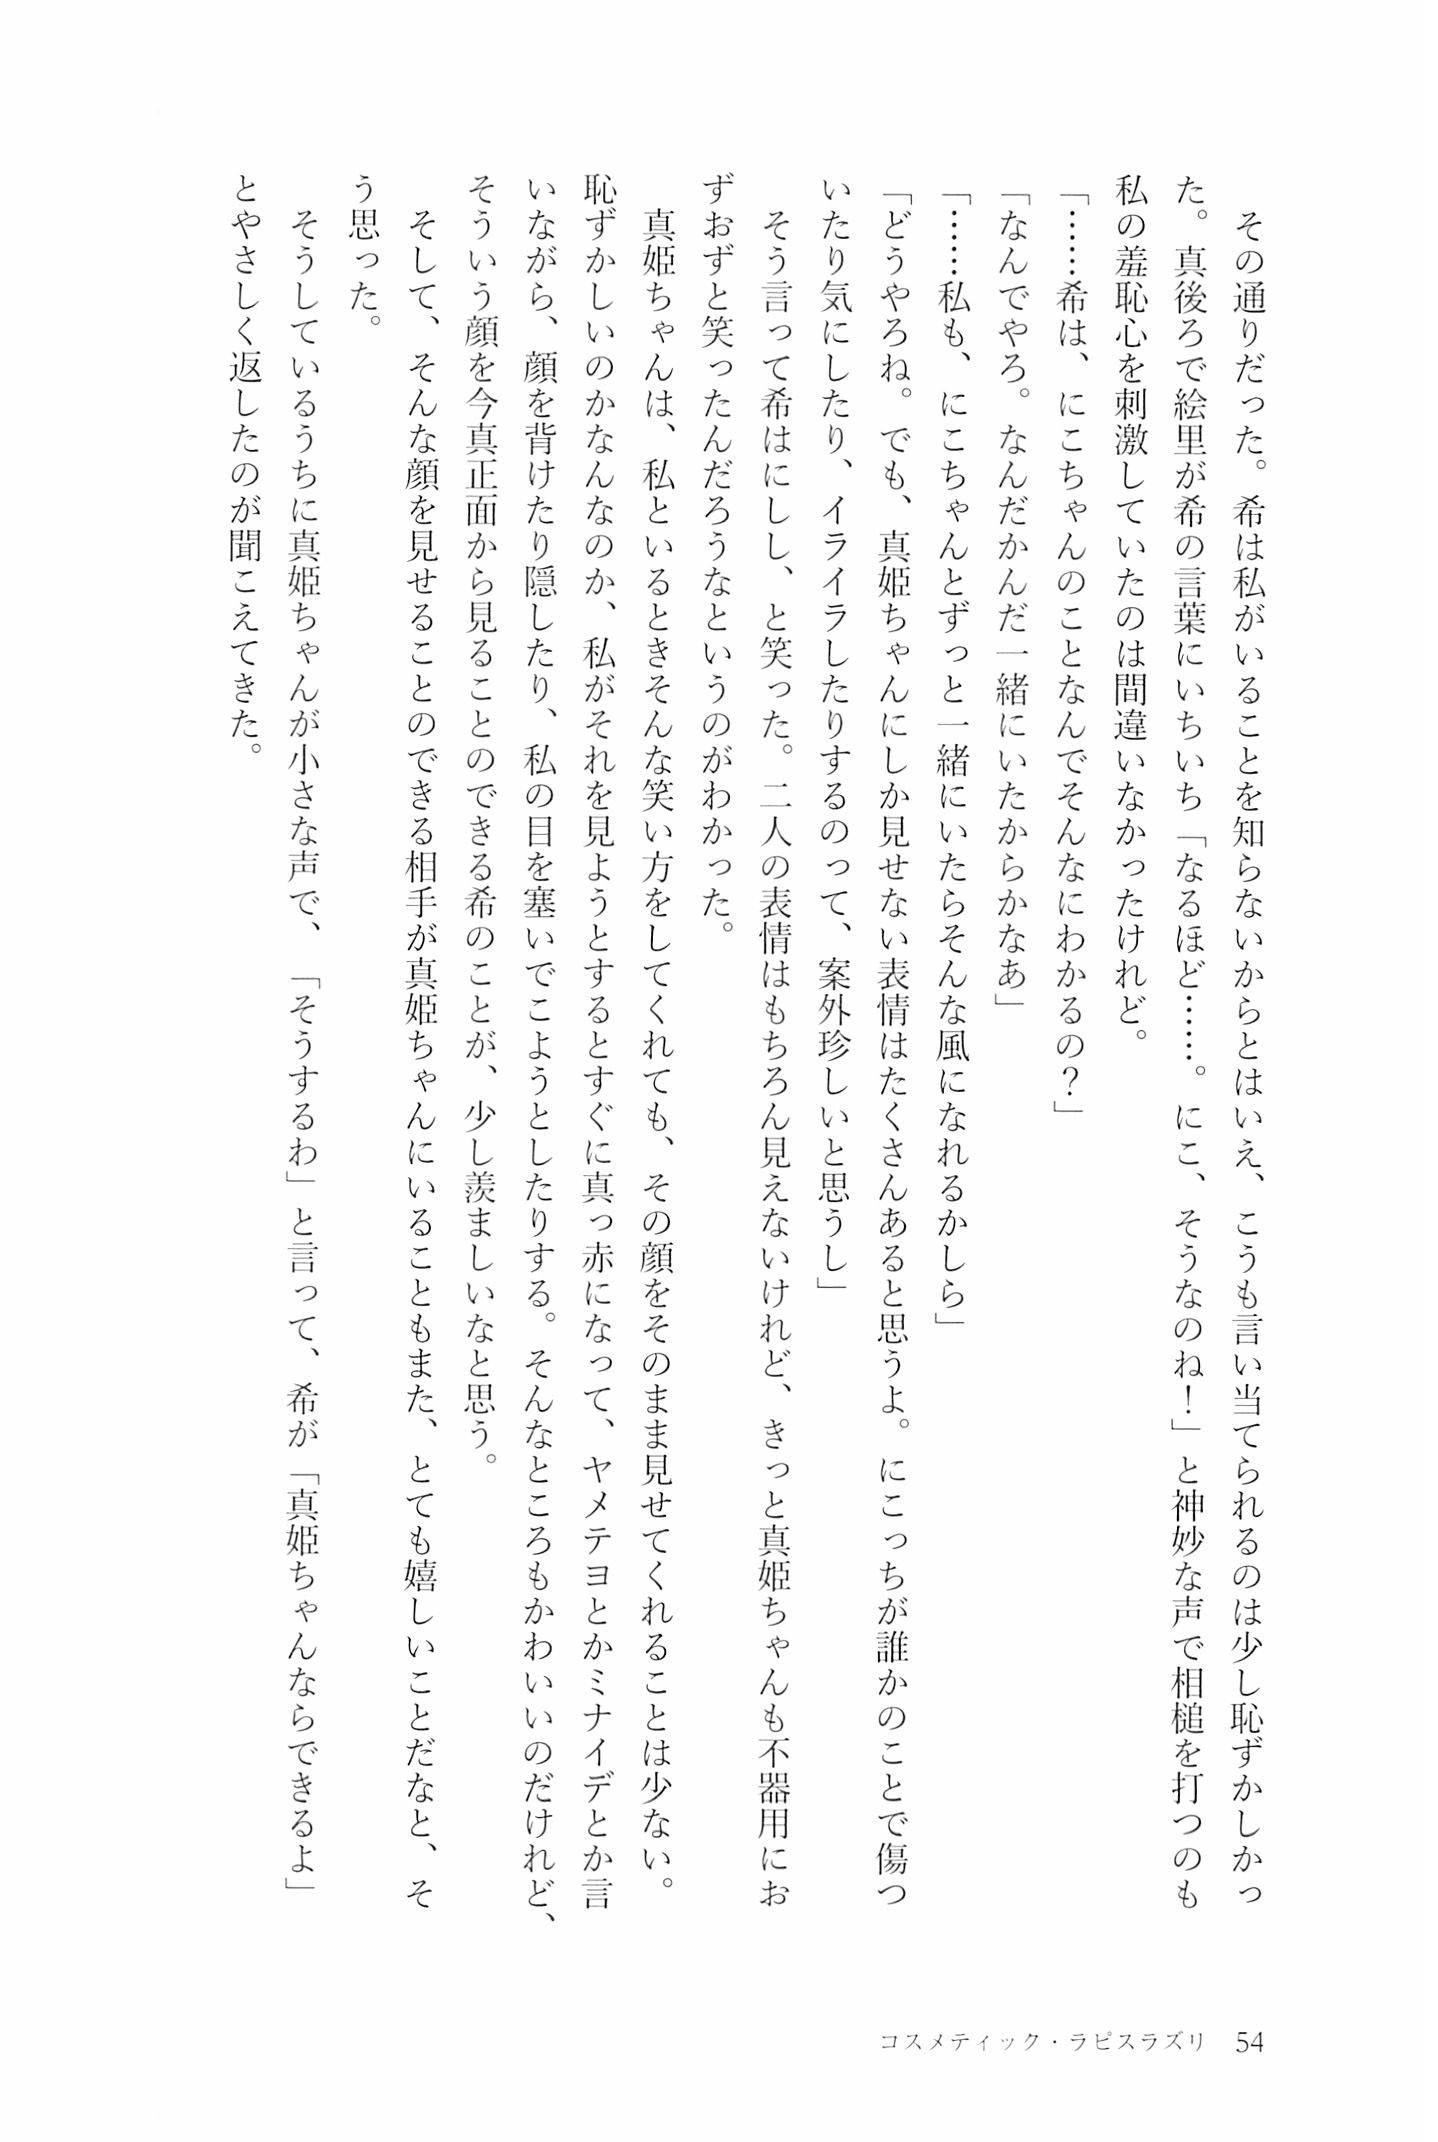 その通りだった。希は私がいることを知らないからとはいえ、こうも言い当てられるのは少し恥ずかしかっ
た。真後ろで絵里が希の言葉にいちいち「なるほど……。にこ、そうなのね！」と神妙な声で相槌を打つのも
私の羞恥心を刺激していたのは間違いなかったけれど。
「……希は、にこちゃんのことなんでそんなにわかるの？」
「なんでやろ。なんだかんだ一緒にいたからかなあ」
「……私も、にこちゃんとずっと一緒にいたらそんな風になれるかしら」
「どうやろね。でも、真姫ちゃんにしか見せない表情はたくさんあると思うよ。にこっちが誰かのことで傷つ
いたり気にしたり、イライラしたりするのって、案外珍しいと思うし」
　そう言って希はにしし、と笑った。二人の表情はもちろん見えないけれど、きっと真姫ちゃんも不器用にお
ずおずと笑ったんだろうなというのがわかった。
　真姫ちゃんは、私といるときそんな笑い方をしてくれても、その顔をそのまま見せてくれることは少ない。
恥ずかしいのかなんなのか、私がそれを見ようとするとすぐに真っ赤になって、ヤメテヨとかミナイデとか言
いながら、顔を背けたり隠したり、私の目を塞いでこようとしたりする。そんなところもかわいいのだけれど、
そういう顔を今真正面から見ることのできる希のことが、少し羨ましいなと思う。
　そして、そんな顔を見せることのできる相手が真姫ちゃんにいることもまた、とても嬉しいことだなと、そ
う思った。
　そうしているうちに真姫ちゃんが小さな声で、「そうするわ」と言って、希が「真姫ちゃんならできるよ」
とやさしく返したのが聞こえてきた。
コスメティック・ラピスラズリ 54